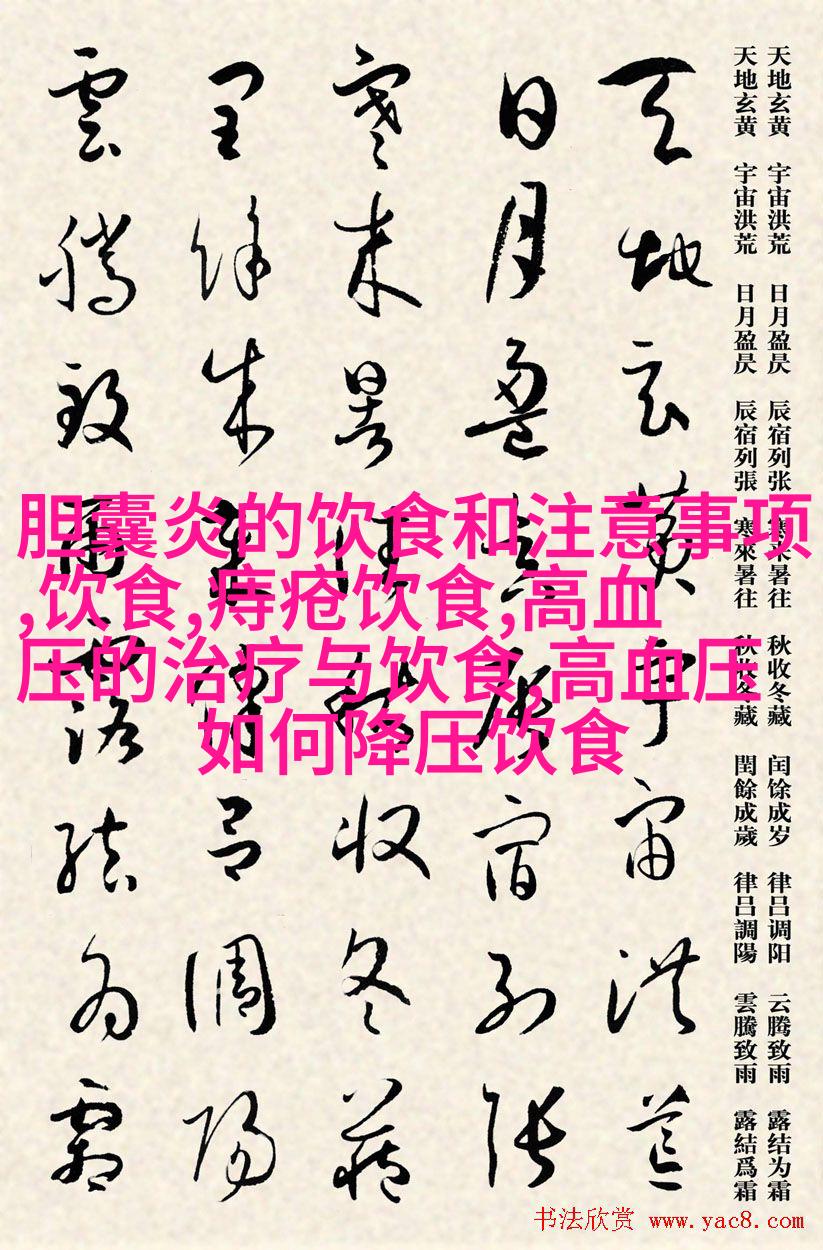 天地玄黄 宇宙洪荒 日月盈昃 辰宿列张 寒来暑往 秋收冬藏 闰馀成岁 律吕调阳 云腾致雨 露结为霜
天地玄黄 宇宙洪荒 日月盈昃 辰宿列張 寒來暑往 秋收冬藏 閏餘成歲 律吕調陽 雲騰致雨 露結爲霜
天地玄黄宇宙洪荒
日月盈昃辰宿列張
寒来暑往秋收冬藏
閏餘成歲律吕調陽
雲騰致雨露結為霜
胆囊炎的饮食和注意事项
,饮食,痔疮饮食,高血
压的治疗与饮食,高血压
如何降压饮食
书法欣赏 www.yac8.com